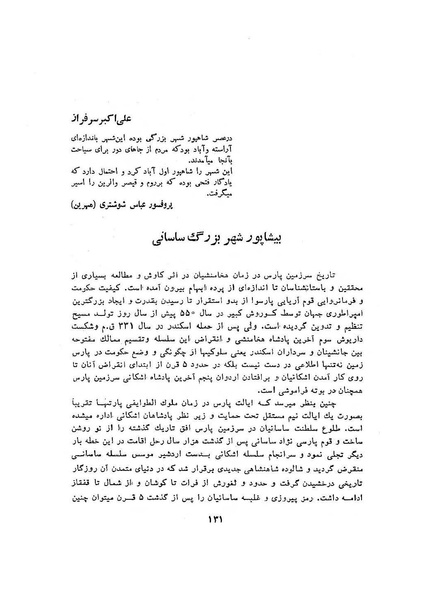 علی‌اکبر سرفراز
درعصر شاهپور شهر بزرگی بوده این‌شهر باندازه‌ای
آراسته وآباد بودکه مردم از جاهای دور برای سیاحت
بآنجا میآمدند.
این شهر را شاهپور اول آباد کرد و احتمال دارد که
یادگار فتحی بوده که برروم و قیصر والرین را اسیر
میگرفت.
پروفسور عباس شوشتری (مهرین)
بیشاپور شهر بزرگ ساسانی
تاریخ سرزمین پارس در زمان هخامنشیان در اثر کاوش و مطالعه بسیاری از
محققین و باستانشناسان تا اندازه‌ای از پرده ابهام بیرون آمده است. کیفیت حکومت
و فرمانروایی قوم آریایی پارسوا از بدو استقرار تا رسیدن بقدرت و ایجاد بزرگترین
امپراطوری جهان توسط کوروش کبیر در سال ۵۵۰ پیش از سال روز تولد مسیح
تنظیم و تدوین گردیده است. ولی پس از حمله اسکندر در سال ۳۳۱ ق.م وشکست
داریوش سوم آخرین پادشاه هخامنشی و انقراض این سلسله وتقسیم ممالک مفتوحه
بین جانشینان و سرداران اسکندر یعنی سلوکیها از چگونگی و وضع حکومت در پارس
زمین نه‌تنها اطلاعی در دست نیست بلکه در حدود ۵ قرن از ابتدای انقراض آنان تا
روی کار آمدن اشکانیان و برافتادن اردوان پنجم آخرین پادشاه اشکانی سرزمین پارس
همچنان در بوته فراموشی است.
چنین بنظر میرسد که ایالت پارس در زمان ملوک الطوایفی پارتها تقریباً
بصورت یک ایالت نیم مستقل تحت حمایت و زیر نظر پادشاهان اشکانی اداره میشده
است. طلوع سلطنت ساسانیان در سرزمین پارس افق تاریک گذشته را از نو روشن
ساخت و قوم پارسی نژاد ساسانی پس از گذشت هزار سال رحل اقامت در این خطه بار
دیگر تجلی نمود و سرانجام سلسله اشکانی بدست اردشیر موسس سلسله ساسانی
منقرض گردید و شالوده شاهنشاهی جدیدی برقرار شد که در دنیای متمدن آن روزگار
تاریخی درخشیدن گرفت و حدود و ثغورش از فرات تا کوشان و از شمال تا قفقاز
ادامه داشت. رمز پیروزی و غلبه ساسانیان را پس از گذشت ۵ قرن میتوان چنین
۱۳۱